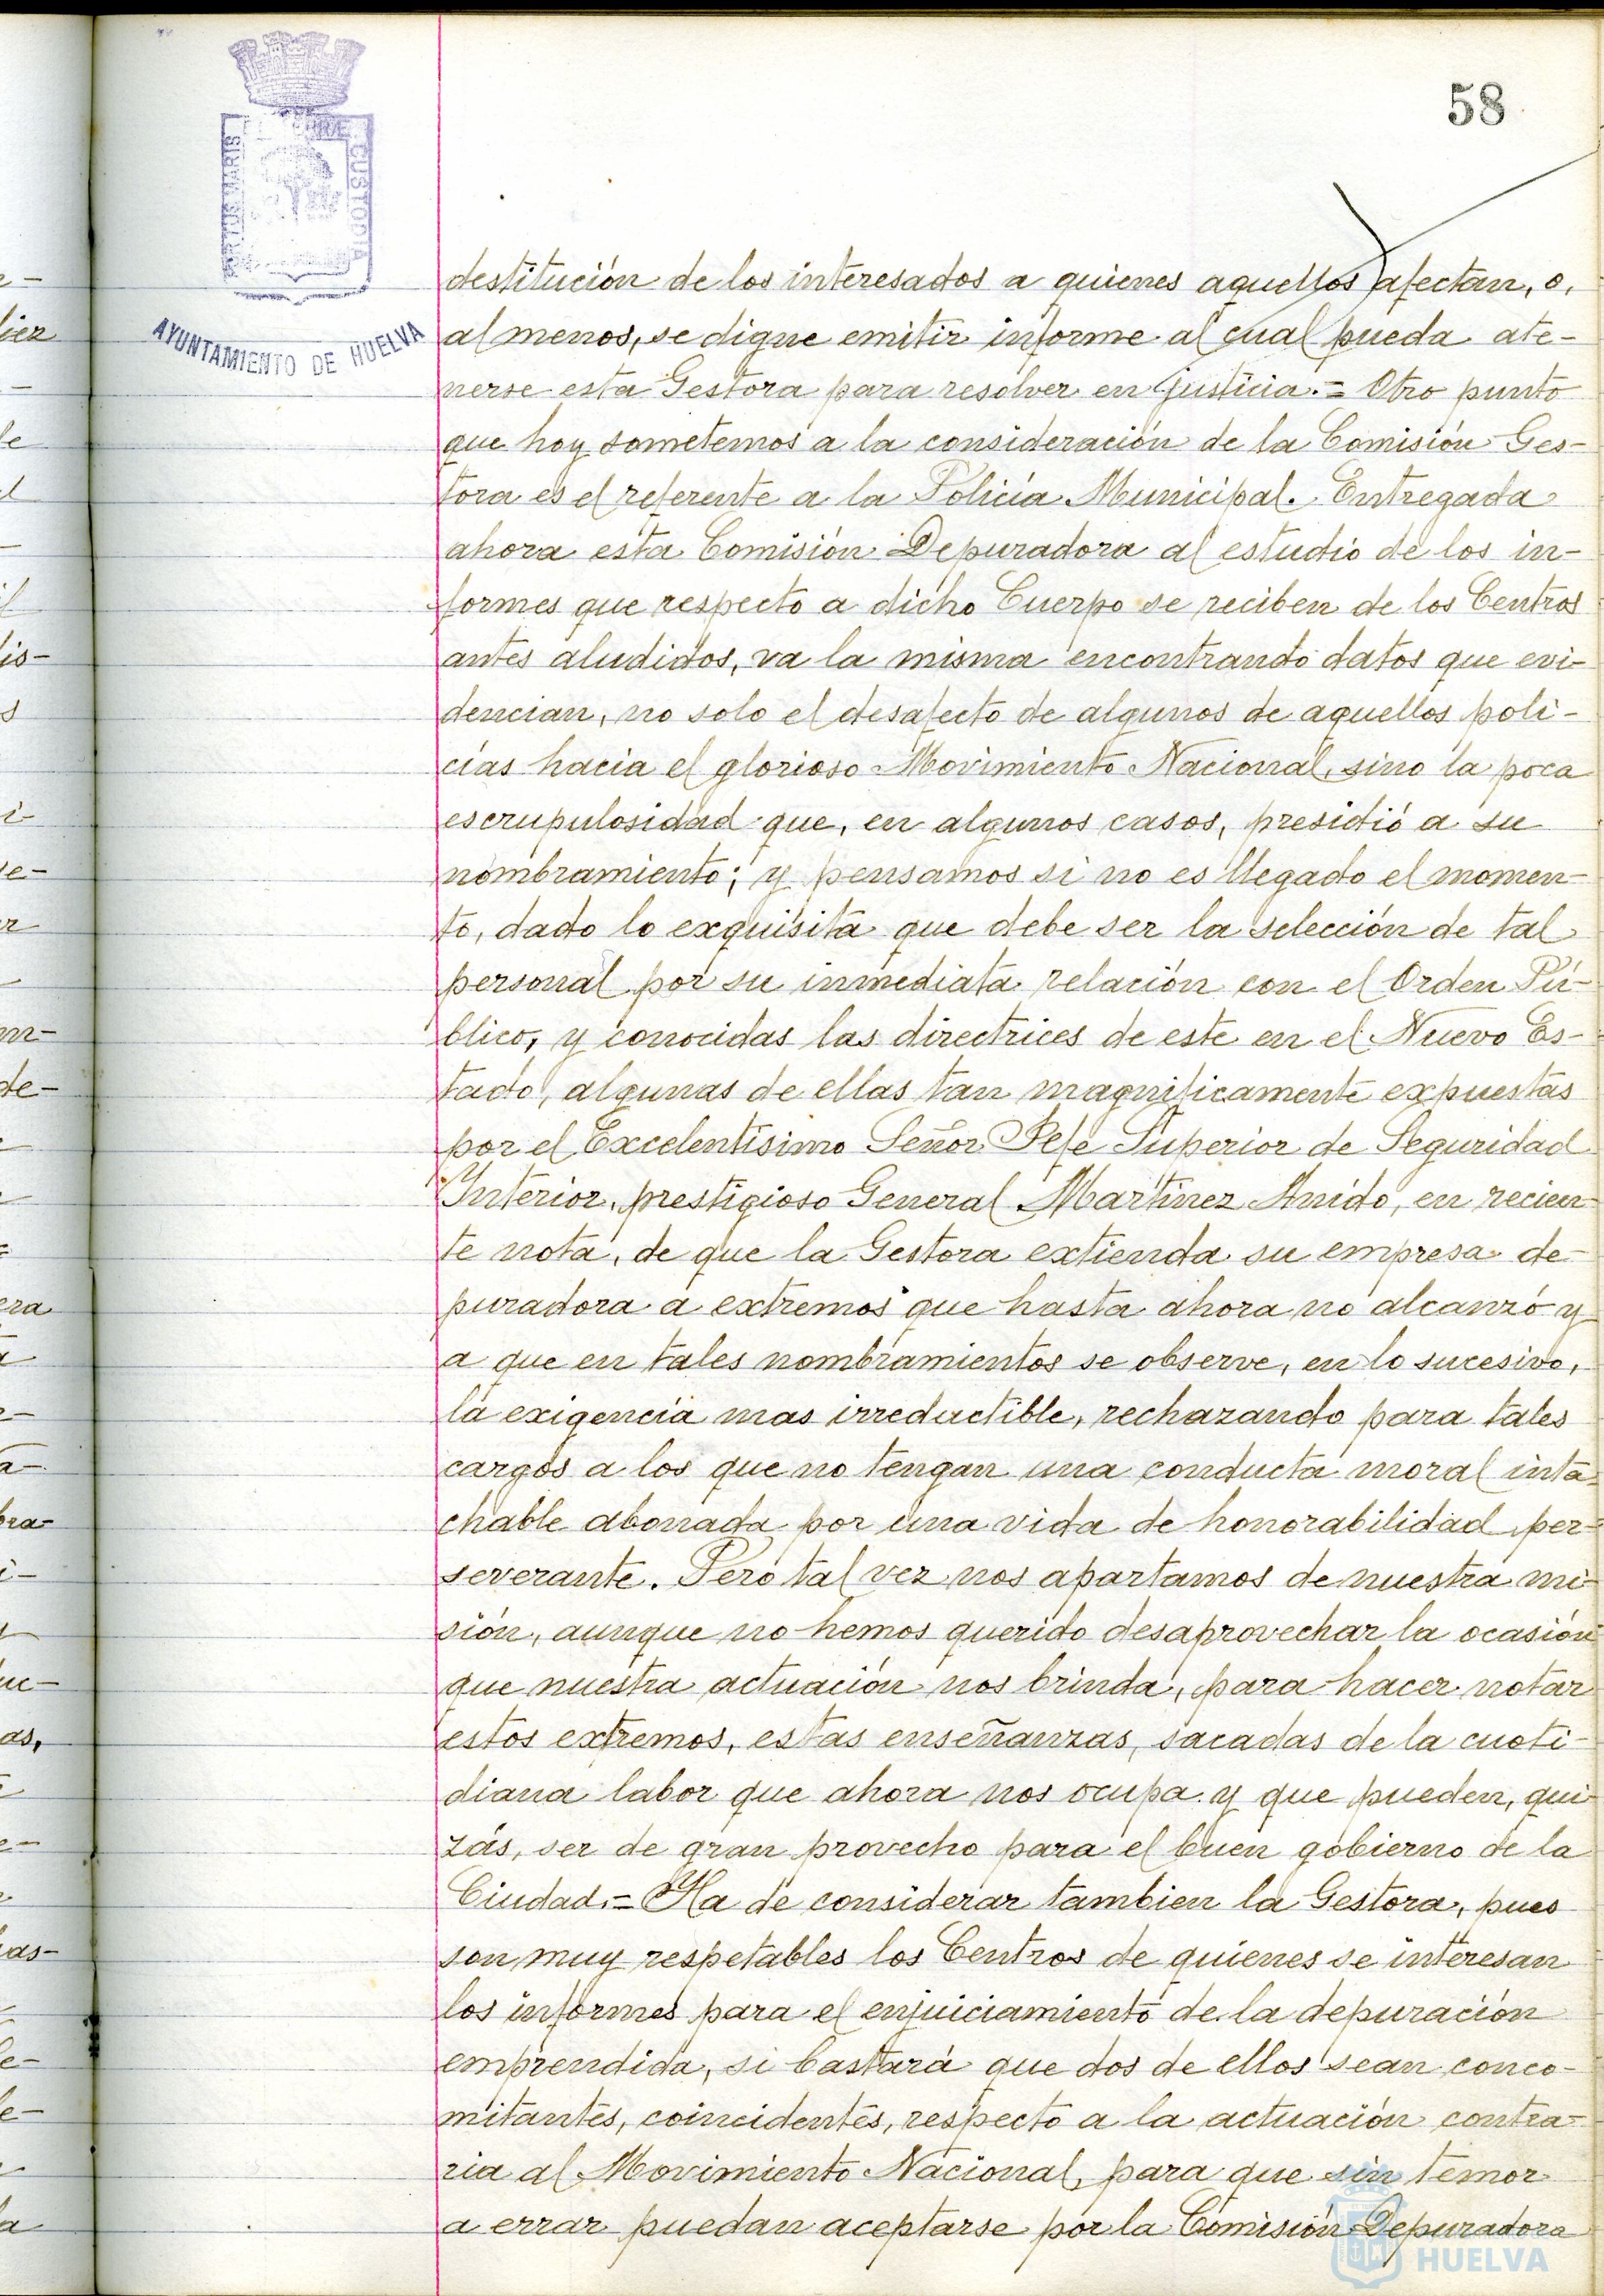 58
PORTUS MARIS
CUSTODIA
AYUNTAMIENTO DE HUELVA
destitución de los interesados a quienes aquellos afectan, o,
al menos, se digne emitir informe al cual pueda ate-
nerse esta Gestora para resolver en justicia.= Otro punto
que hoy sometemos a la consideración de la Comisión Ges-
tora es el referente a la Policía Municipal. Entregada
ahora esta Comisión Depuradora al estudio de los in-
formes que respecto a dicho Cuerpo se reciben de los Centros
antes aludidos, va la misma encontrando datos que evi-
dencian, no solo el desafecto de algunos de aquellos poli-
cías hacia el glorioso Movimiento Nacional, sino la poca
escrupulosidad que, en algunos casos, presidió a su
nombramiento; y pensamos si no es llegado el momen-
to, dado lo exquisita que debe ser la selección de tal
personal por su inmediata relación con el Orden Pú-
blico, y conocidas las directrices de este en el Nuevo Es-
tado, algunas de ellas tan magnificamente expuestas
por el Excelentísimo Señor Jefe Superior de Seguridad
Interior, prestigioso General Martinez Anido, en recien-
te nota, de que la Gestora extienda su empresa de-
puradora a extremos que hasta ahora no alcanzó y
a que en tales nombramientos se observe, en lo sucesivo,
la exigencia mas irreductible, rechazando para tales
cargos a los que no tengan una conducta moral inta-
chable abonada por una vida de honorabilidad per-
severante. Pero tal vez nos apartamos de nuestra mi-
sión, aunque no hemos querido desaprovechar la ocasión
que nuestra actuación nos brinda, para hacer notar
estos extremos, estas enseñanzas, sacadas de la cuoti-
diana labor que ahora nos ocupa y que pueden, qui-
zás, ser de gran provecho para el buen gobierno de la
Ciudad.= Ha de considerar tambien la Gestora, pues
son muy respetables los Centros de quienes se interesan
los informes para el enjuiciamiento de la depuración
emprendida, si bastará que dos de ellos sean conco-
mitantes, coincidentes, respecto a la actuación contra-
ria al Movimiento Nacional, para que sin temor
a errar puedan aceptarse por la Comisión Depuradora
HUELVA